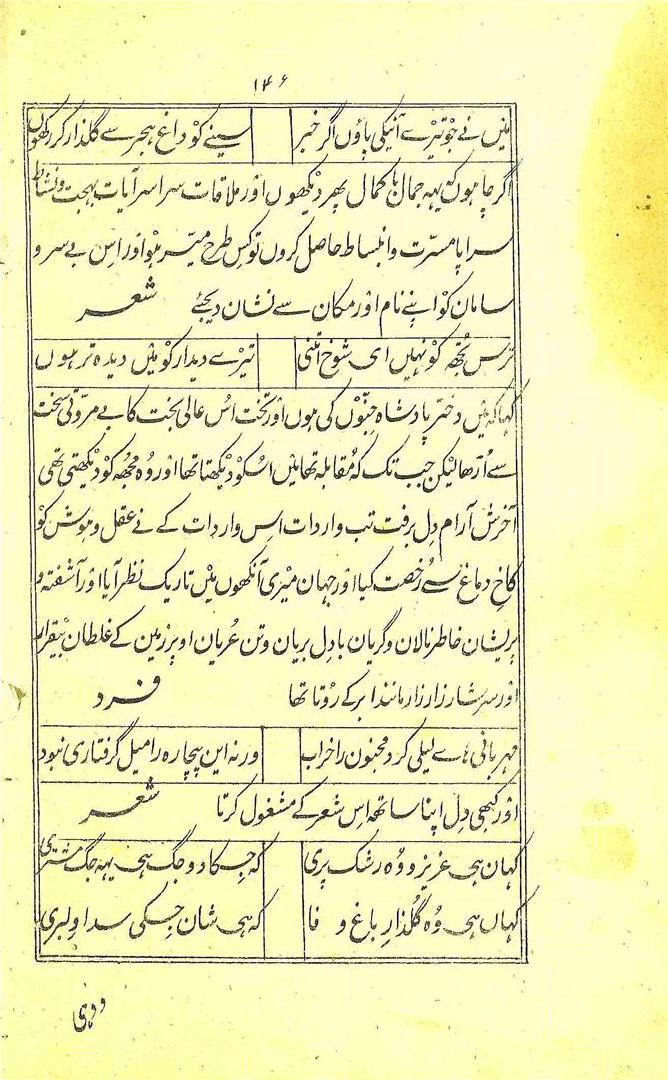 ۱۴۶
میں نے جو تیرے آنیکی پاؤں اگر خبر سینے کو داغ ہجر سے گلذار کر رکھوں
اگر چاہوں کہ یہہ جمال با کمال پھر دیکھوں اور ملاقات سراسر آیات بہجت و نشاط
سراپا مسرت و انبساط حاصل کروں تو کس طرح میسر ہو اور اس بے سر و
سامان کو اپنے نام اور مکان سے نشان دیجئے شعر
ترس تجھہ کو نہیں ای شوخ اتنی تیرے دیدار کو میں دیدہ تر ہوں
کہا کہ میں دختر پادشاہ جنّوں کی ہوں اور تخت اُس عالی بخت کا بے مروّتی سخت
سے اُڑھا لیکن جب تک کہ مُقابلہ تھا میں اُسکو دیکھتا تھا اور وُہ مُجھہ کو دیکھتی تھی
آخرش آرام دِل برفت تب واردات اِس واردات کے نے عقل و ہوش کو
کاخِ دماغ سے رُخصت کیا اور جہان میری آنکھوں میں تاریک نظر آیا اور آشفتہ و
پریشان خاطر نالان و گریان با دِل بریان و تن عُریان اوپر زمین کے غلطان بیقرار
اور سرشار زار زار مانند ابر کے روتا تھا فرد
مہربانی ہاے لیلی کرد مجنون را خراب ورنہ این بیچارہ را میل گرفتاری نبود
اور کبھی دِل اپنا ساتھہ اِس شعر کے مشغول کرتا شعر
کہان ہی عزیزو وُہ رشک پری کہ جِسکا دو جگ ہی یہہ جگ مشتری
کہاں ہی وُہ گُلذارِ باغ و فا کہ ہی شان جِسکی سدا دلبری